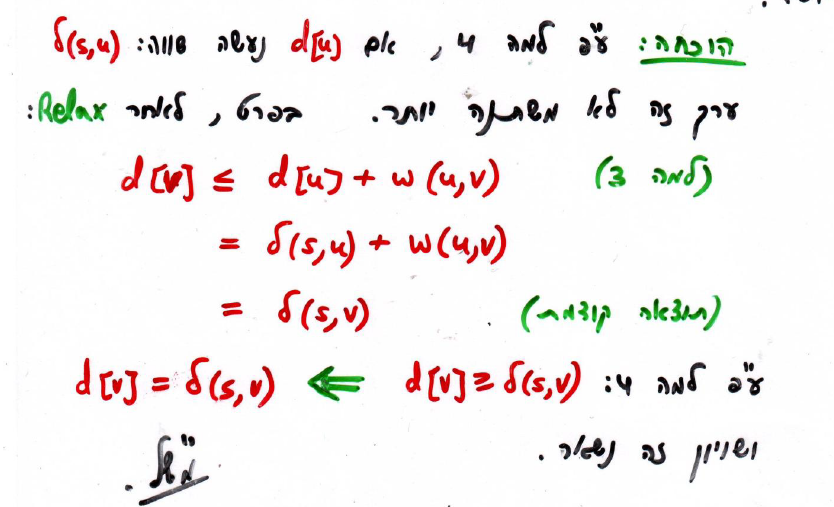 הוכחה: ע"פ למה 4, אם d[u] נעשה שווה: δ(s,u)
ערך זה לא משתנה יותר. בפרט, לאחר Relax:
d[v] ≤ d[u] + w(u,v) (למה 3)
= δ(s,u) + w(u,v)
= δ(s,v) (תוצאה קודמת)
ע"פ למה 4: d[v] ≥ δ(s,v) ⇐ d[v] = δ(s,v)
ושוויון זה נשאר.
מש"ל.